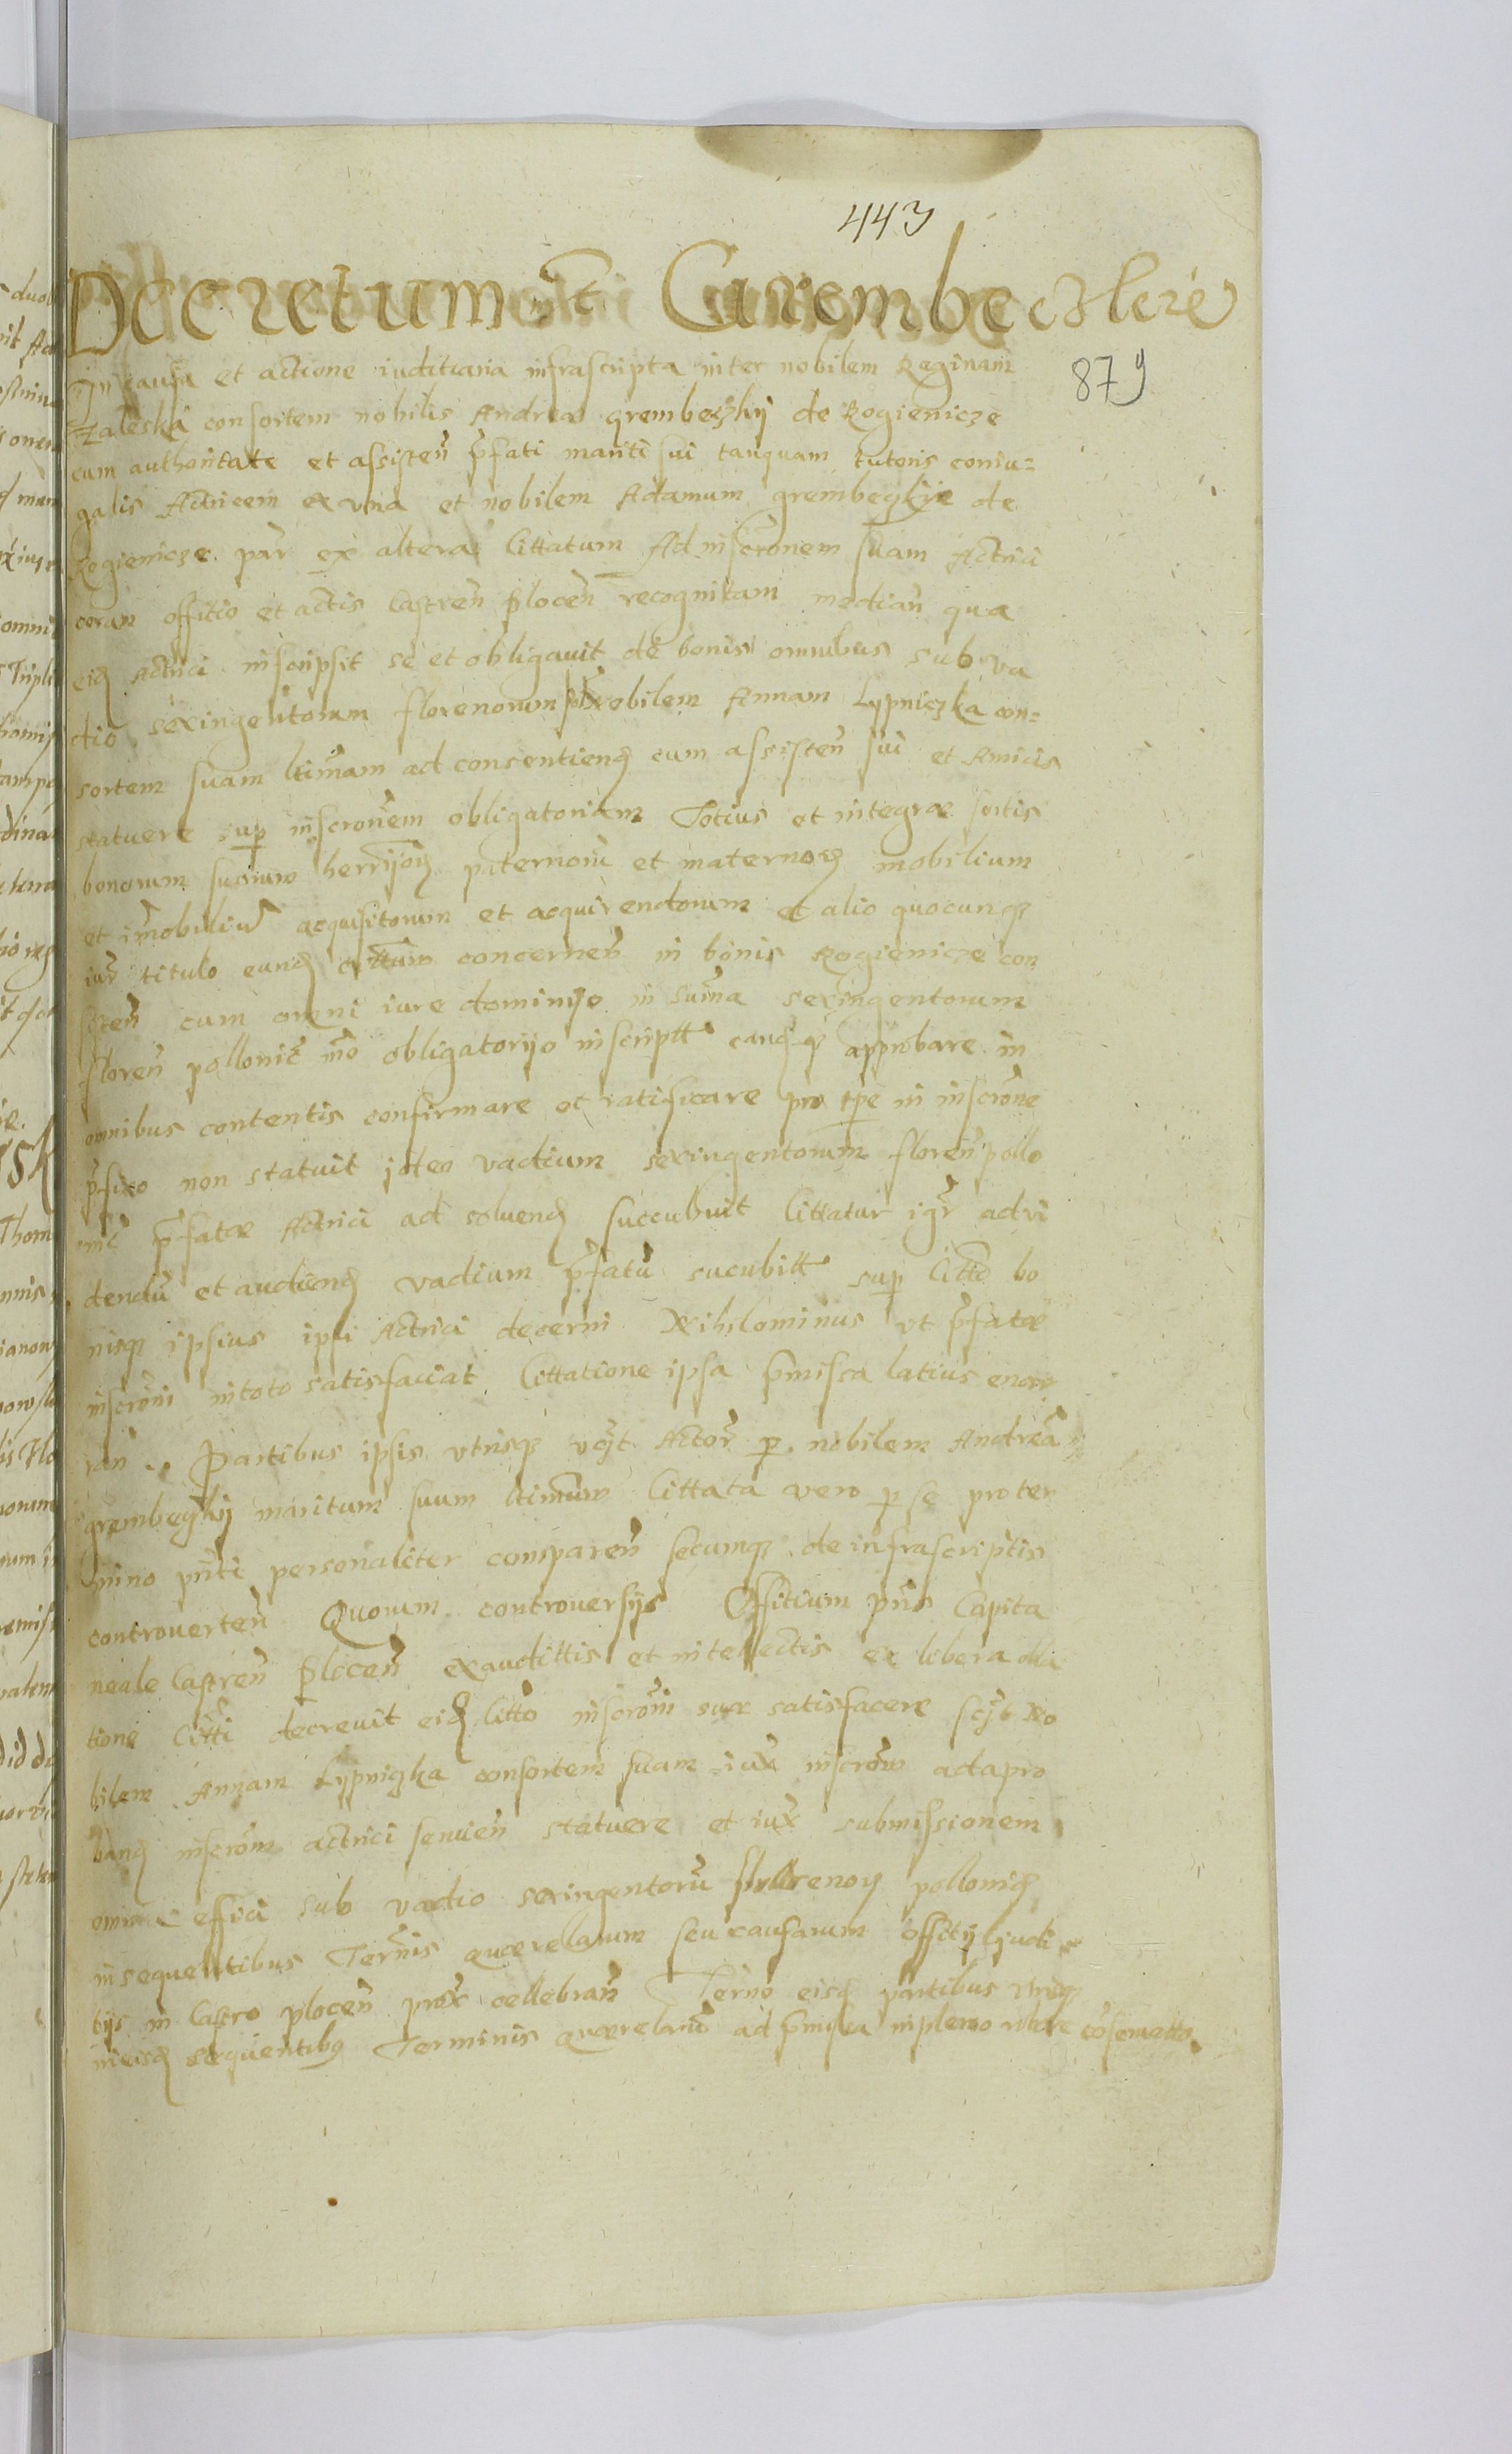 443
Decretum int Grembeczkie
879
In causa et actione iuditiaria infrascripta inter nobilem Reginam
Zaleska consortem nobilis Andreae grembeczkij de Rogienicze
cum authoritate et assisten pfati mariti sui tanquam tutoris coniu=
galis Actricem ex vna et nobilem Adamum grembeczkie de
Rogienicze par ex altera littatum Ad inscronem suam Actrici
coram offitio et actis Castren plocen recognitam median qua
eid Actrici inscripsit se et obligauit de bonis omnibus sub va
dio sexingentorum florenorum nobilem Annam Lypniczka con=
sortem suam ltimam ad consentiend cum assisten sui et Amicis
statuere sup inscronem obligatoriam Totius et integrae sortis
bonorum suorum paternorum et maternor mobilium
et imobiliu acquisitorum et acquirendorum et alio quocunq
iur titulo eund cittum concernen in bonis Rogienicze con
sisten cum omni iure dominijo in suma sexingentorum
floren pollonic mo obligatorijo inscriptt eandq approbare in
omnibus contentis confirmare et ratificare pro tpe in inscrone
pfixo non statuit ideo vadium sexingentorum floren pollo
nic pfatae Actrici ad soluend succubuit littatur igr ad vi
dendu et audiend vadium pfatu sucubitt sup litto bo
nisq ipsius ipsi Actrici decerni Nihilominus vt pfatae
inscroni in toto satisfaciat littatione ipsa pmissa latius enar
ran Partibus ipsis vtrisq vcjt Actor p nobilem Andrea
grembeczkij maritum suum ltimum littata vero p se pro ter
mino pnti personaliter comparen secumq de infrascriptis
controuerten Quorum controuersijs Offitium pns Capita
neale Castren plocen exaudittis et intellectis ex libera obla
tione litti decrevit eid litto inscroni suae satisfacere scjt No
bilem Annam Lypnizka consortem suam iux inscrom ad apro
band inscrom actrici seruien statuere et iux submissionem
omia effici sub vadio sexingentoru florenor pollonic
insequentibus Ternis querellarum seu causarum offitij judi
tijs in Castro plocen prox cellebran Terno eisd partibus vtrisq
in eisd sequentibq Terminis querelaru ad pmissa in pleno robore coseruatto